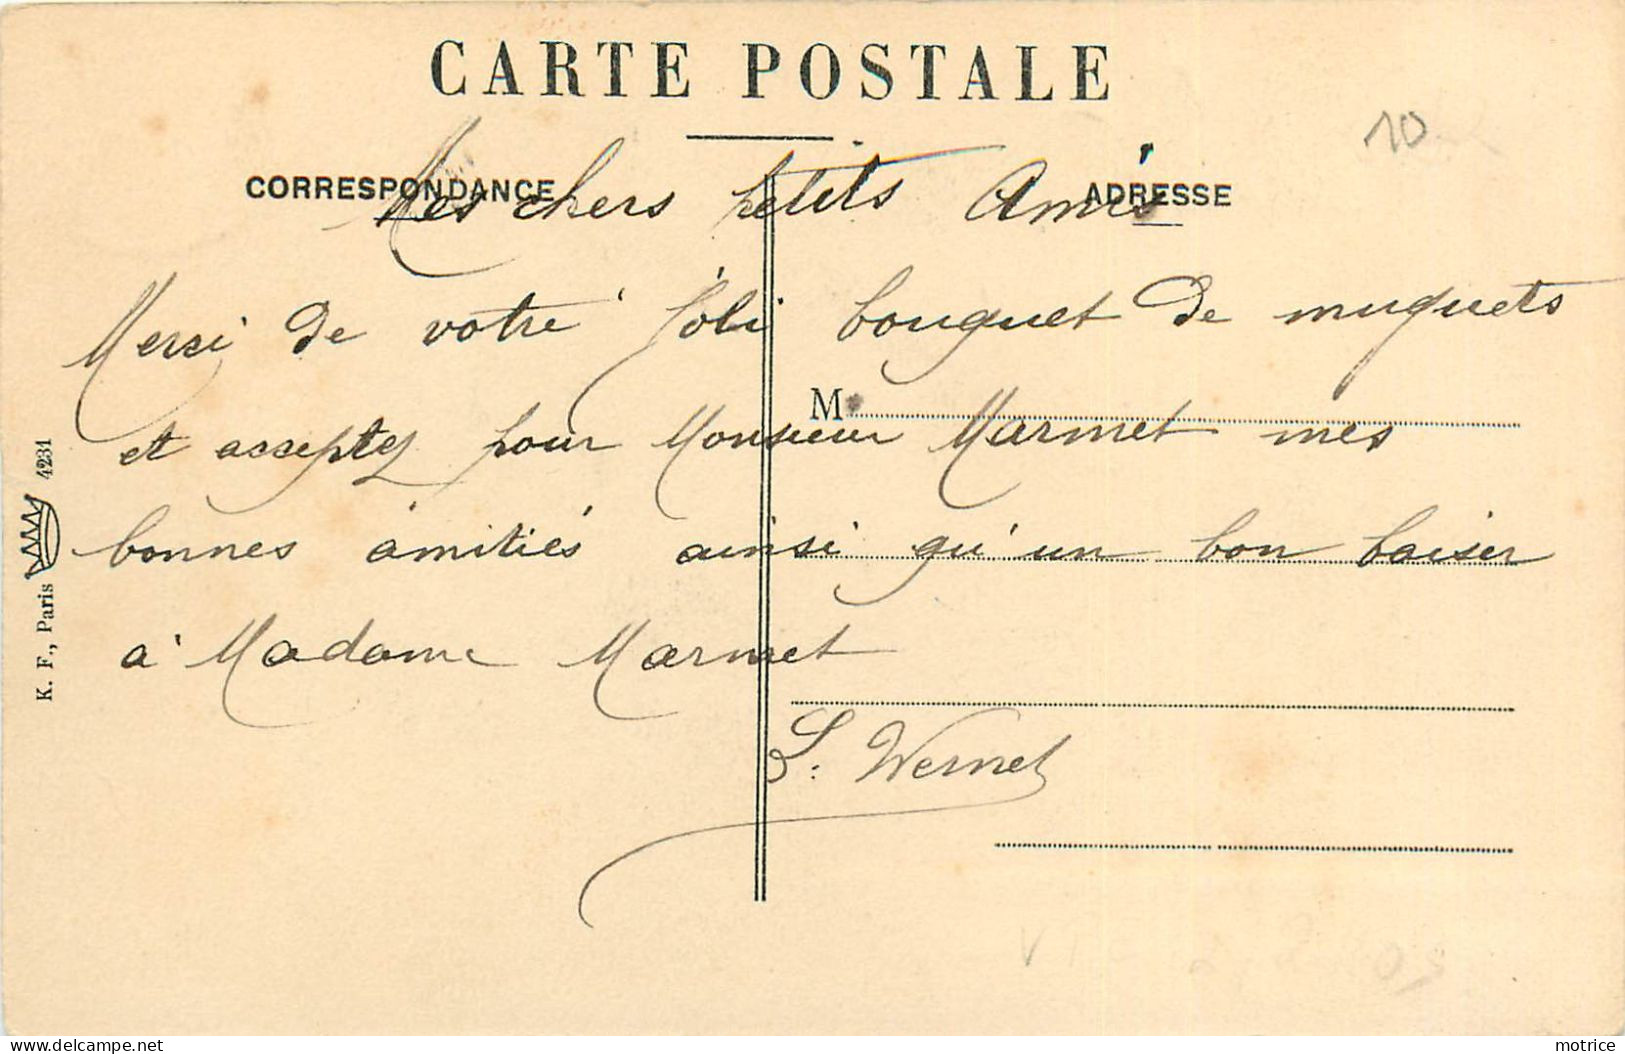 CARTE POSTALE
10
CORRESPONDANCE
ADRESSE
Mes chers petits Amis
Merci de votre joli bouquet de muguets
M
et acceptez pour Monsieur Marmet mes
bonnes amitiés ainsi qu'un bon baiser
à Madame Marmet
S. Wernet
K. F., Paris 4231
motrice